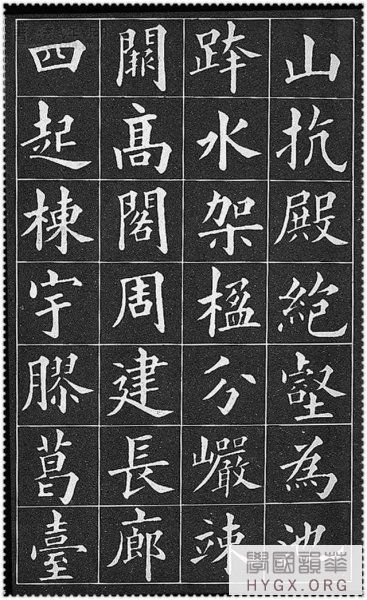 山抗殿絶壑為池
跨水架楹分巖竦
闕髙閣周建長廊
四起棟宇膠葛臺
華韻國學
HYGX.ORG